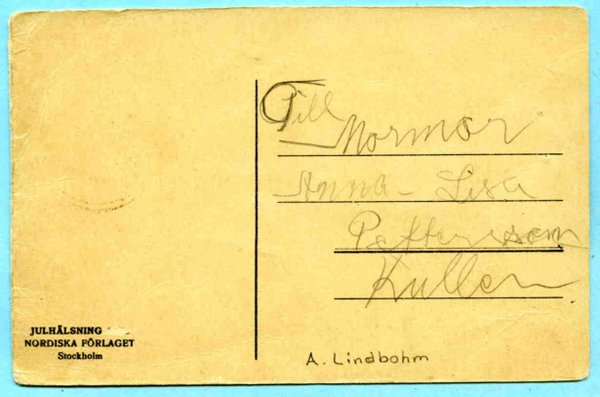 Till
Mormor
Anna-Lisa
Pettersson
Kullen
JULHÄLSNING
NORDISKA FÖRLAGET
Stockholm
A. Lindbohm